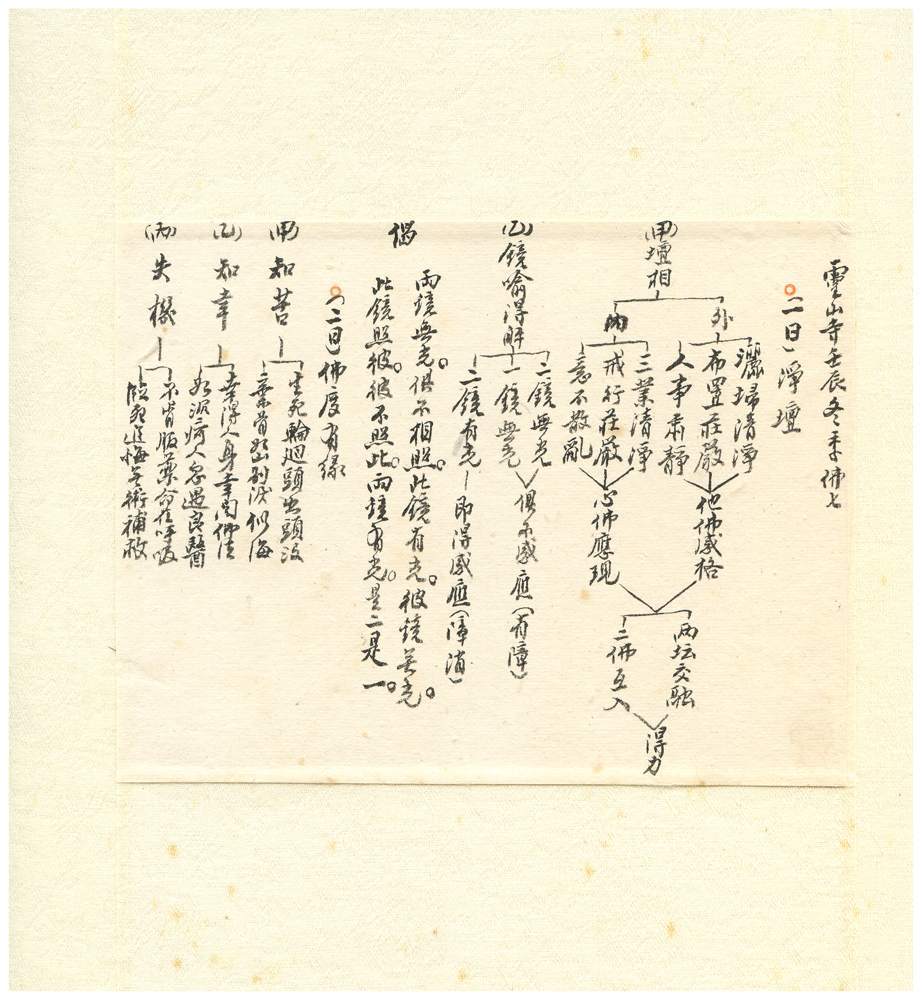 靈山寺壬辰冬季佛七
(一日) 淨壇
(甲)壇相
外
灑掃清淨
布置莊嚴
人事肅靜
他佛感格
內
三業清淨
戒行莊嚴
意不散亂
心佛應現
兩坛交融
二佛互入
得力
(乙)鏡喻得解
二鏡無光
一鏡無光
俱不感應(有障)
二鏡有光
即得感應(障消)
偈
兩鏡無光。俱不相照。此鏡有光。彼鏡無光。
此鏡照彼。彼不照此。兩鏡有光。是二是一。
(二日) 佛度有緣
(甲)知苦
生死輪迴頭出頭沒
(乙)知幸
幸得人身幸聞佛法
如沉疴人忽遇良醫
(丙)失機
不肯服藥命在呼吸
臨死追悔無術補救